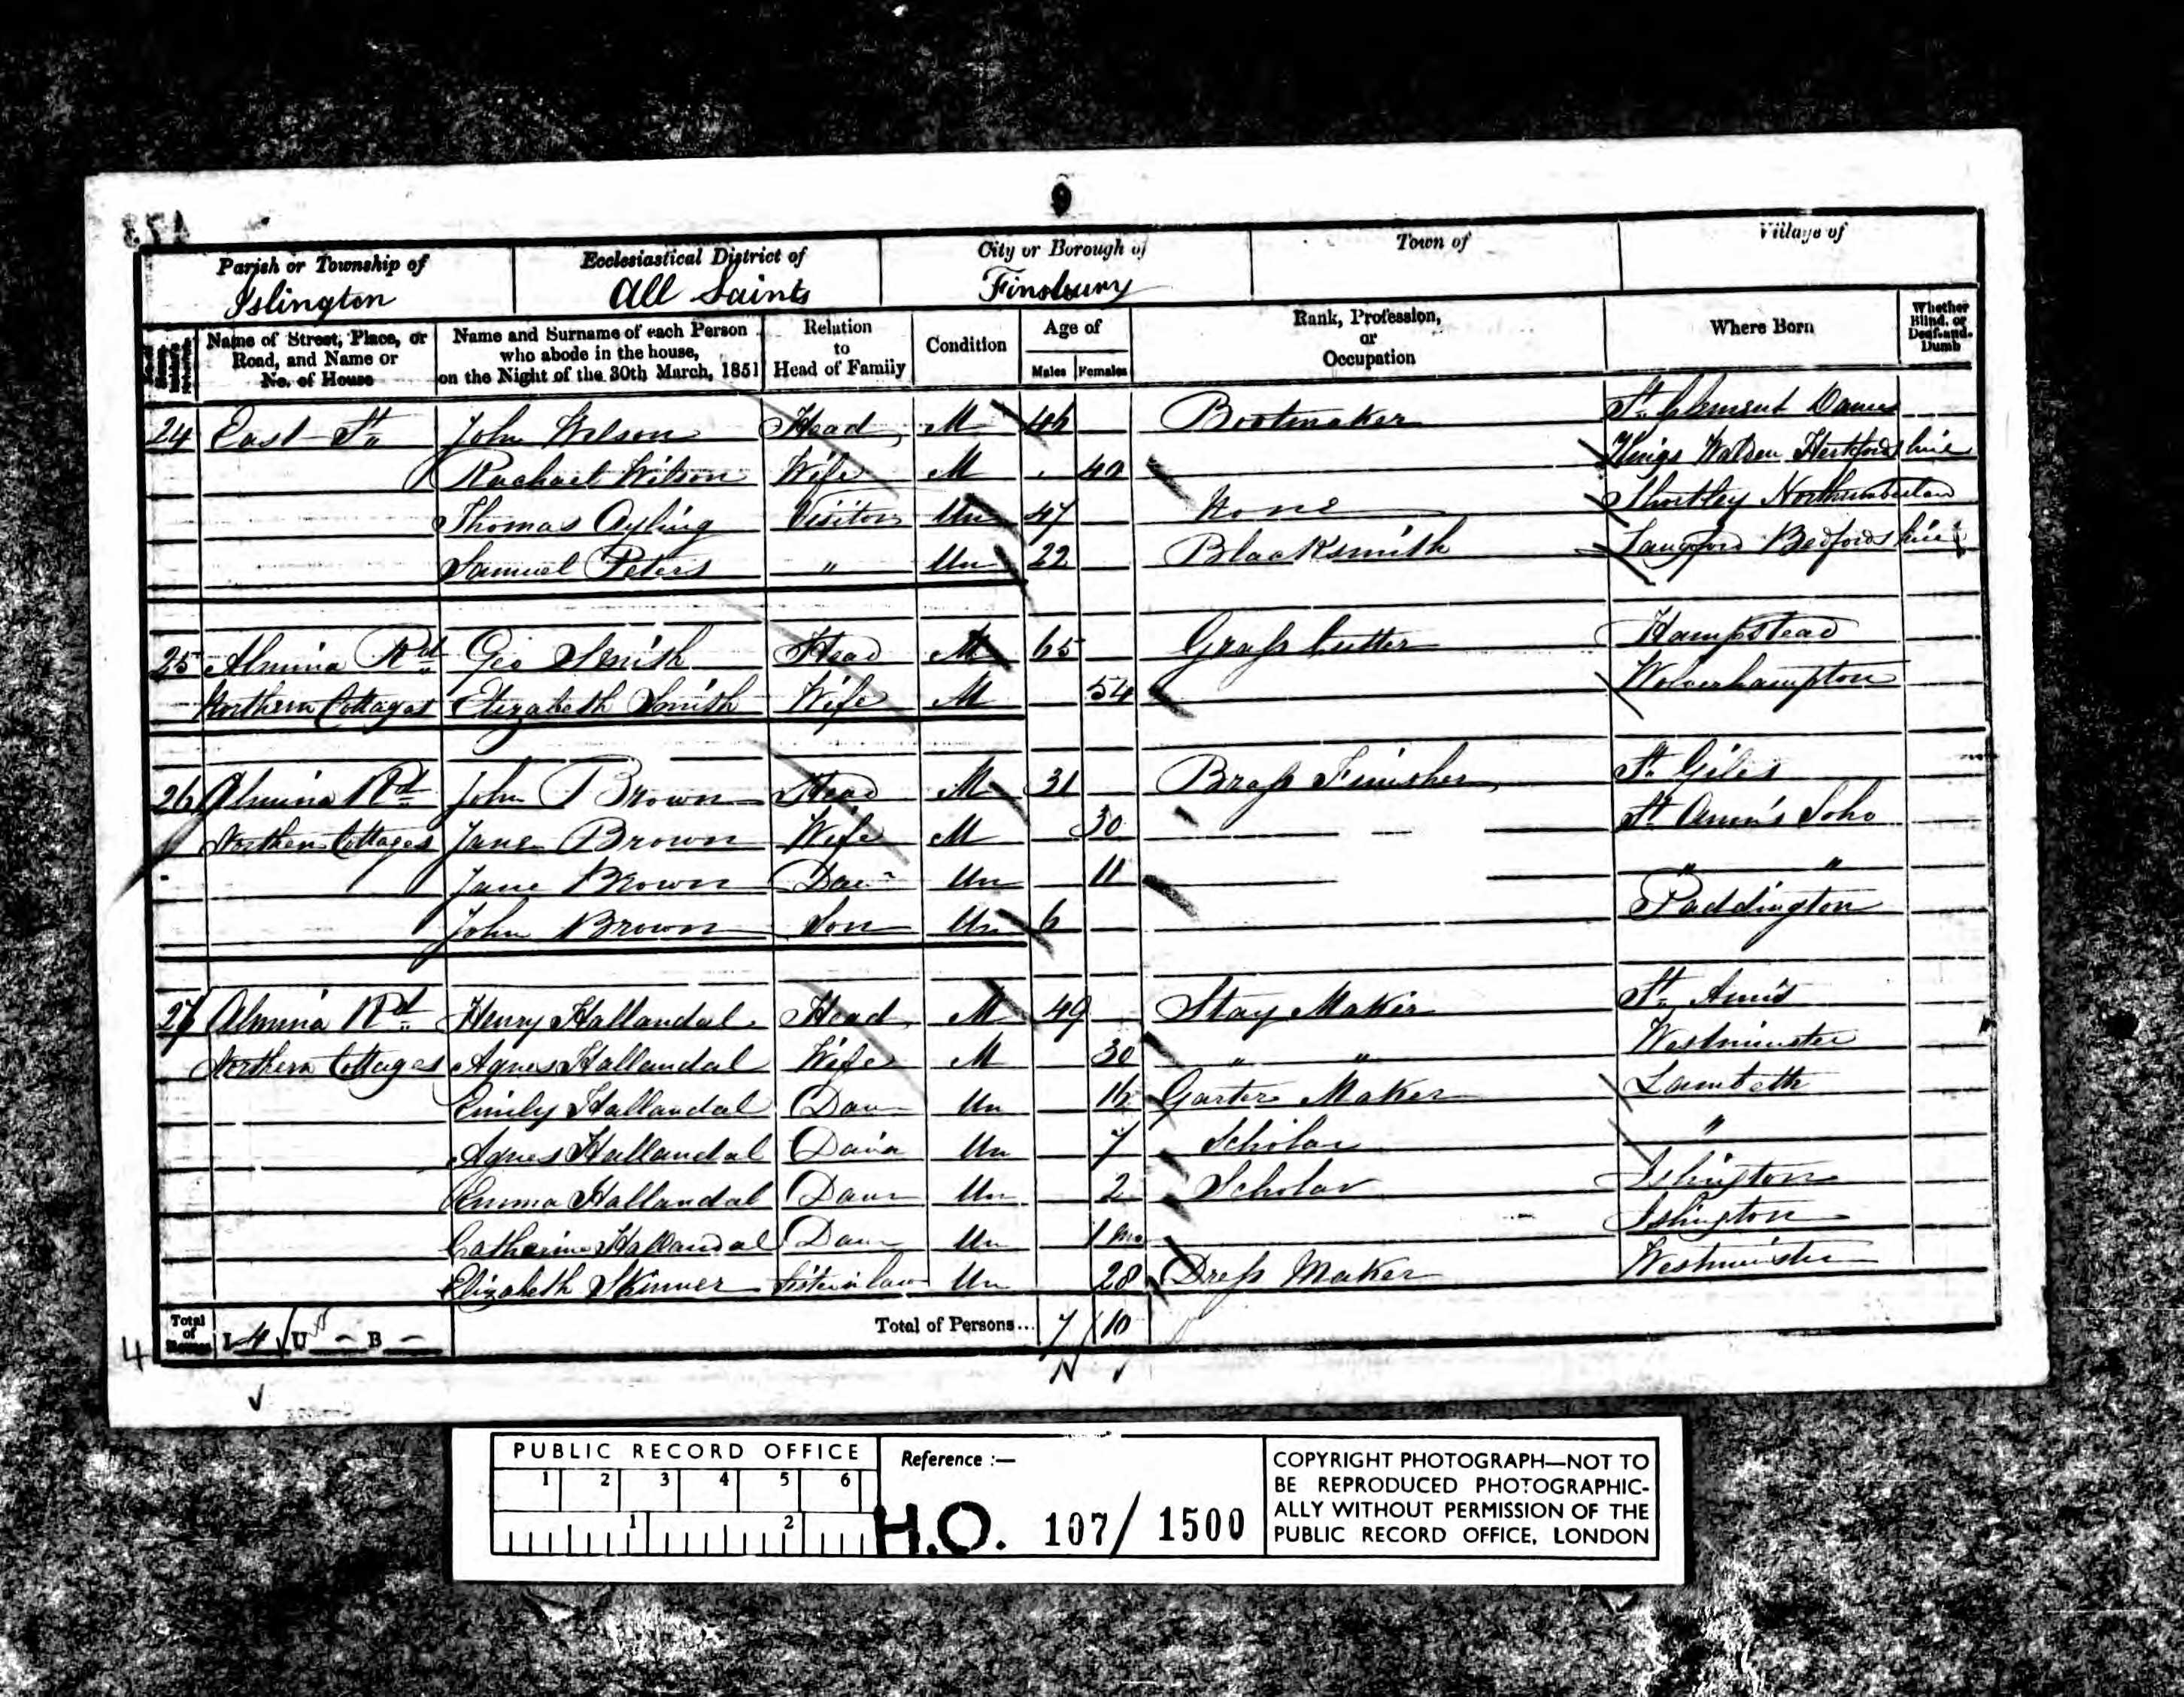 9
Parish or Township of Ecclesiastical District of City or Borough of Town of Village of
Islington All Saints Finsbury
Name of Street, Place, or Road, and Name or No. of House
Name and Surname of each Person who abode in the house, on the Night of the 30th March, 1851
Relation to Head of Family
Condition
Age of
Males Females
Rank, Profession, or Occupation
Where Born
Whether Blind, or Deaf-and-Dumb
24 East St. John Wilson Head M 46 Bootmaker St. Clement Danes
Rachael Wilson Wife M 40 Kings Walden Hertfordshire
Thomas Ayling Visitor Un 47 None Northumberland
Samuel Peters " Un 22 Blacksmith Langford Bedfordshire
25 Almina Rd Geo Smith Head M 65 Grass Cutter Hampstead
Northern Cottages Elizabeth Smith Wife M 54 Wolverhampton
26 Almina Rd John Brown Head M 31 Brass Finisher St. Giles
Northern Cottages Jane Brown Wife M 30 — — — St. Ann's Soho
Jane Brown Daur Un 11 — — " "
John Brown Son Un 6 Paddington
27 Almina Rd Henry Hallandal Head M 49 Stay Maker St. Ann's
Northern Cottages Agnes Hallandal Wife M 30 " " Westminster
Emily Hallandal Daur Un 16 Garter Maker Lambeth
Agnes Hallandal Daur Un 7 Scholar "
Emma Hallandal Daur Un 2 Scholar Islington
Catherine Hallandal Daur Un 1 Mo Islington
Elizabeth Skinner Sister in law Un 28 Dress Maker Westminster
4 Total of Houses I 4 U - B - Total of Persons... 7 10
PUBLIC RECORD OFFICE
1 2 3 4 5 6
1 2
Reference :—
H.O. 107/ 1500
COPYRIGHT PHOTOGRAPH—NOT TO
BE REPRODUCED PHOTOGRAPHIC-
ALLY WITHOUT PERMISSION OF THE
PUBLIC RECORD OFFICE, LONDON